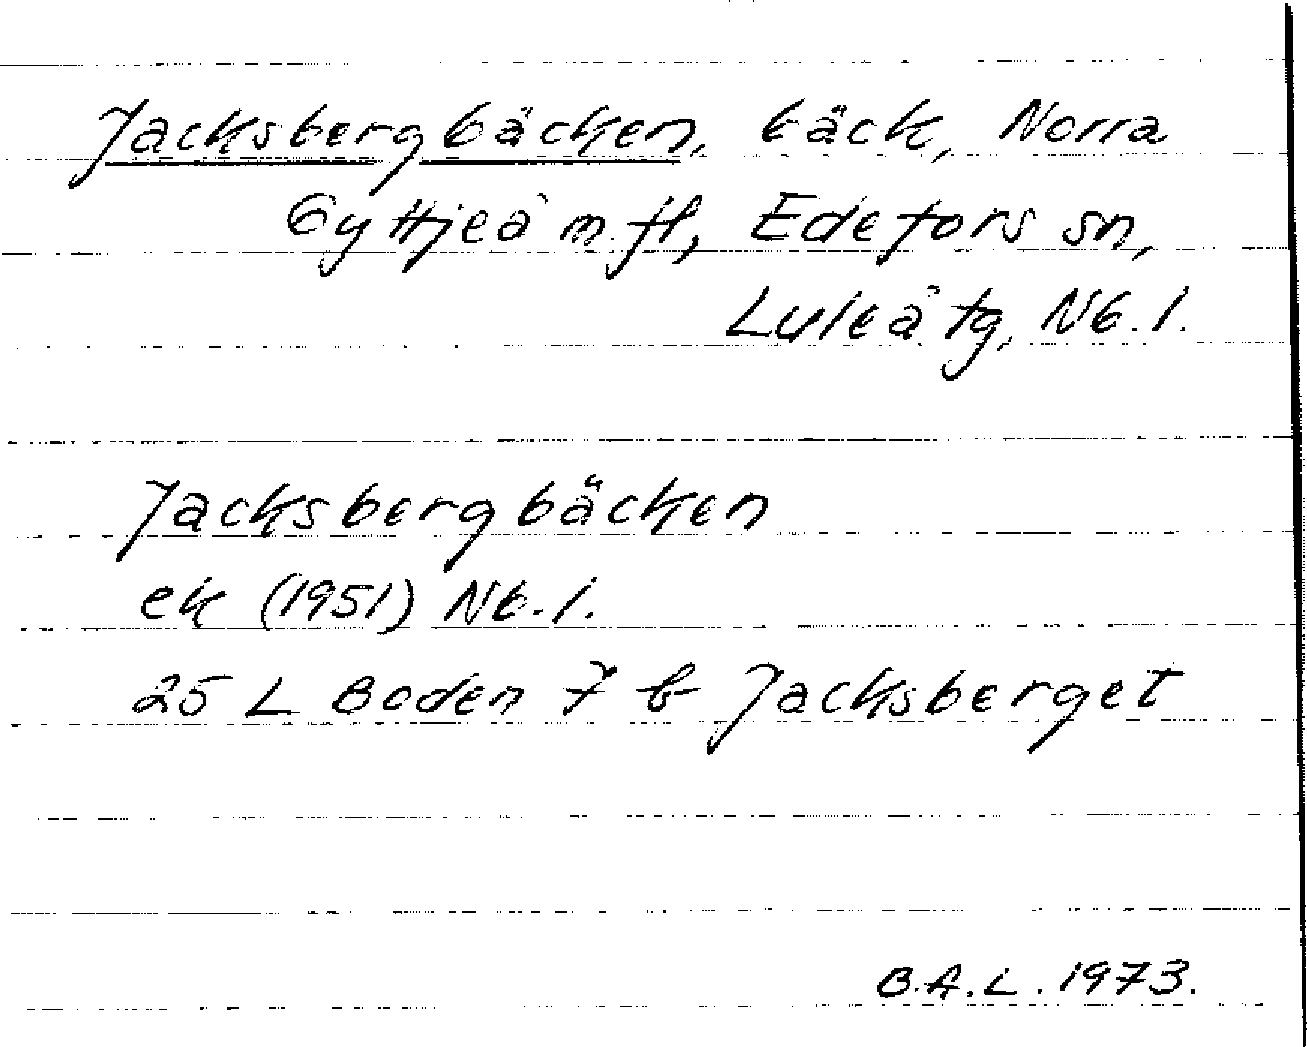 Jacksbergbäcken, bäck, Norra
Gyttjeå m.fl, Edefors sn,
Luleå tg, Nb.l.
Jacksbergbäcken
ek (1951) Nb.l.
25 L Boden 7 b Jacksberget
B.A.L. 1973.